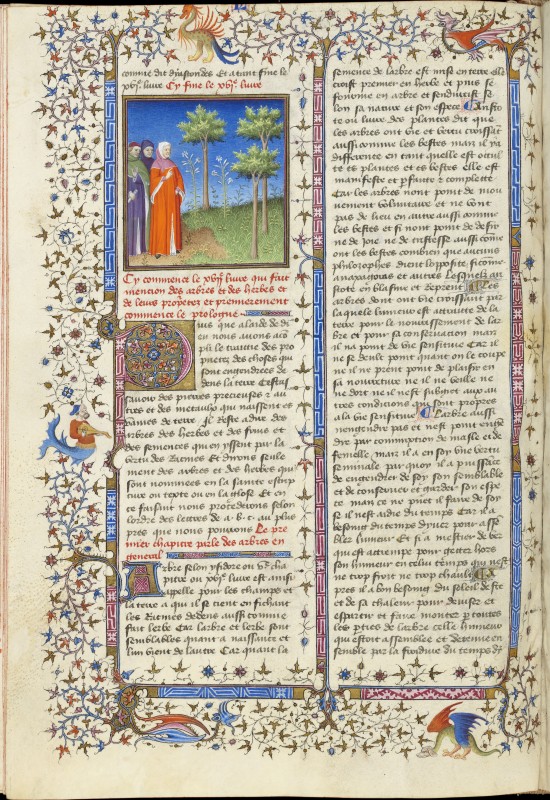 comme dit dyascorides Et atant fine le
xvi. livre Cy fine le xvi. livre
Cy commence le xvii livre qui fait
mention des arbres et des herbes et
de leurs proprietez et premierement
commence le prologue
Puis que a laide de di
eu nous avons acom
pli le traittie des pro
prietez des choses qui
sont engendrees de
dens la terre Cestas
savoir des pierres precieuses z au
tres et des metaulx qui naissent es
vaines de terre Il Reste a dire des
arbres des herbes et des fruis et
des semences qui en yssent par la
vertu des Racines Et dirons seule
ment des arbres et des herbes qui
sont nommees en la sainte escrip
ture ou texte ou en la glose Et en
ce faisant nous procederons selon
lordre des lettres de a . b . c . au plus
pres que nous pourrons Le pre
mier chapitre parle des arbres en
general
Arbre selon ysidore ou
chapitre ou xvii livre est ainsi
appelle pour les champs et
la terre a qui il se tient en fichant
les Racines dedens aussi comme
fait lerbe Car larbre et lerbe sont
semblables quant a naissance et
lun vient de lautre Car quant la
semence de larbre est mise en terre elle
croist premier en herbe et puis se
fourme en arbre et sendurcist se
lon sa nature et son espece Aristo
te ou livre des plantes dit que
les arbres ont vie et vertu croissant
aussi comme les bestes mais il ya
difference en tant quelle est occul
te es plantes et es bestes elle est
manifeste et parfaite z complette
Car les arbres nont point de mou
vement voluntaire et ne vont
pas de lieu en autre aussi comme
les bestes et si nont point de desir
ne de joie ne de tristesse aussi come
ont les bestes combien que aucuns
philosophes dient lopposite sicome
anaxagoras et autres lesquelz ari
stote en blasme et reprent Les
arbres dont ont vie croissant par
laquelle lumeur est attraite de la
terre pour le nourrissement de lar
bre et pour sa conservation mais
il na point de vie sensitive Car il
ne se deult point quant on le coupe
ne il ne prent point de plaisir en
sa nourreture ne il ne veille ne
ne dort ne il nest subget aux au
tres condicions qui sont propres
a la vie sensitive Larbre aussi
nengendre pas et nest point engen
dre par commixtion de masle et de
femelle mais il a en soy une vertu
seminale par quoy il a puissance
de engendrer de soy son semblable
et de conserver et garder son espe
ce mais ce ne puet il faire de soy
se il nest aidie du temps Car il a
besoing du temps dyver pour assem
bler lumeur Et si a mestier de ver
qui est attrempe pour getter hors
son humeur en celui temps qui nest
ne trop froit ne trop chault Et a
pres il a bon besoing du soleil deste
et de sa chaleur pour diviser et
espartir et faire monter par toutes
les parties de larbre celle humeur
qui estoit assemblee et detenue en
semble par la froidure du temps dy